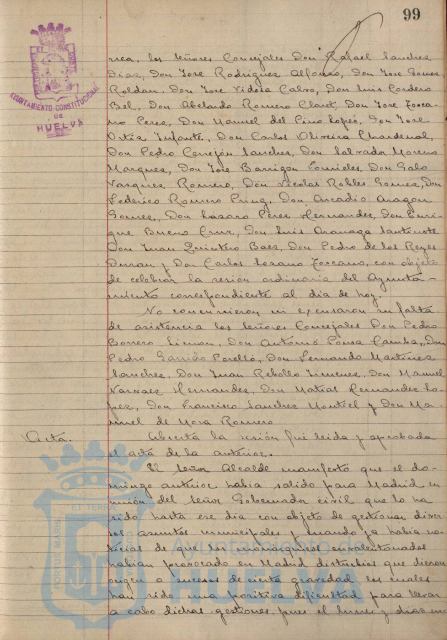 99
AYUNTAMIENTO CONSTITUCIONAL
DE
HUELVA
los Señores Concejales Don Rafael Sanchez
Diaz, Don Jose Rodriguez Alfonso, Don Jose Gomez
Roldan, Don Jose Videsa Calvo, Don Luis Cordero
Bel, Don Abelardo Romero Claret, Don Jose Toscano
Perez, Don Manuel del Pino Lopez, Don Jose
Ortiz Infante, Don Carlos Oliveira Chardenal,
Don Pedro Cerrejon Sanchez, Don Salvador Moreno
Marquez, Don Jose Barrigon Fornieles, Don Galo
Vazquez Romero, Don Nicolas Robles Gomez, Don
Federico Romero Don Arcadio Aragon
Gomez, Don Lazaro Perez Hernandez, Don Enri-
que Bueno Cruz, Don Luis
Don Juan Quintero Baez, Don Pedro de los Reyes
Duran y Don Carlos Lozano Toscano, con objeto
de celebrar la sesion ordinaria del Ayunta-
miento correspondiente al dia de hoy.
No concurrieron ni excusaron su falta
de asistencia los Señores Concejales Don Pedro
Borrero Limon, Don Antonio Ponsa Camba, Don
Pedro Garrido Perelló, Don Fernando Martinez
Sanchez, Don Juan Rebollo Jimenez, Don Manuel
Narvaez Hernandez, Don Matias Hernandez Lo-
pez, Don Francisco Sanchez Montiel y Don Ma-
nuel de Mora Romero
Acta.
Abierta la sesión fué leida y aprobada
el acta de la anterior.
El Señor Alcalde manifestó que el do-
mingo anterior habia salido para Madrid en
union del Señor Gobernador civil que lo ha
sido hasta ese dia con objeto de gestionar diver-
sos asuntos municipales y cuando ya habia no-
ticias de que los monarquicos envalentonados
habian provocado en Madrid disturbios que dieron
origen a sucesos de cierta gravedad los cuales
han sido una positiva dificultad para llevar
a cabo dichas gestiones pues el lunes y dias
PORTUS MARIS
ET TERRAE
Ayuntamiento de
HUELVA